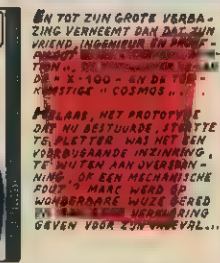 EN TOT ZIJN GROTE VERBA-
ZING VERNEEMT DAN DAT ZIJN
VRIEND, INGENIEUR EN
PILOOT
DE "X-100" EN DE TOE-
KOMSTIGE "COSMOS"..
HELAAS, HET PROTOTYPE
DAT HIJ BESTUURDE, STORTTE
TE PLETTER. WAS HET EEN
VOORBIJGAANDE INZINKING,
TE WIJTEN AAN OVERSPAN-
NING, OF EEN MECHANISCHE
FOUT? MARC WERD OP
WONDERBARE WIJZE GERED
VERKLARING
GEVEN VOOR ZIJN ONGEVAL...